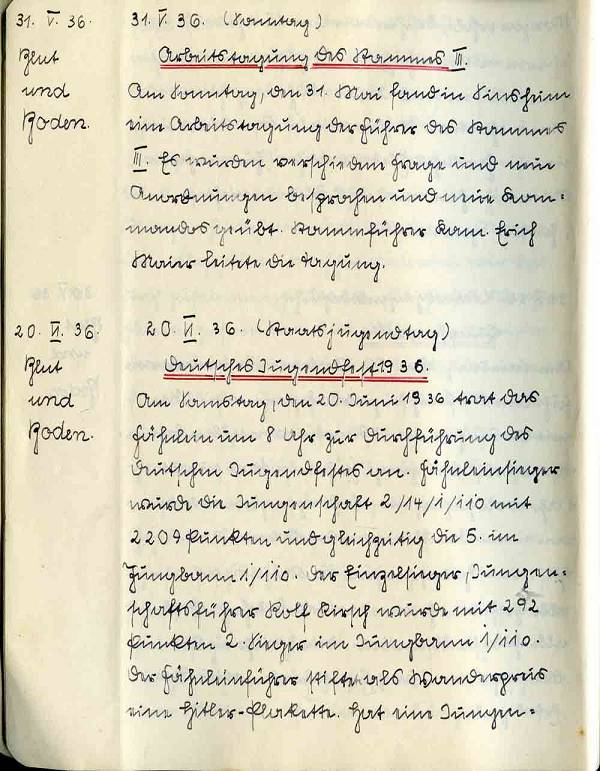 31. V. 36.
Blut
und
Boden.
31. V. 36. (Sonntag)
Arbeitstagung des Stammes III.
Am Sonntag, den 31. Mai fand in Sinsheim
eine Arbeitstagung der Führer des Stammes
III. Es wurden verschiedene Frage und neue
Anordnungen besprochen und neue Kom=
mandos geübt. Stammführer Kam. Erich
Maier leitete die Tagung.
20. VI. 36.
Blut
und
Boden.
20. VI. 36. (Staatsjugendtag)
Deutsches Jugendfest 1936.
Am Samstag, den 20. Juni 1936 trat das
Fähnlein um 8 Uhr zur Durchführung des
Deutschen Jugendfestes an. Fähnleinsieger
wurde die Jungenschaft 2/14/1/110 mit
2209 Punkten und gleichzeitig die 5. im
Jungbann 1/110. Der Einzelsieger, Jungen=
schaftsführer Rolf Kirsch wurde mit 292
Punkten 2. Sieger im Jungbann 1/110.
Der Fähnleinführer stiftet als Wanderpreis
eine Hitler-Plakette. Hat eine Jungen=